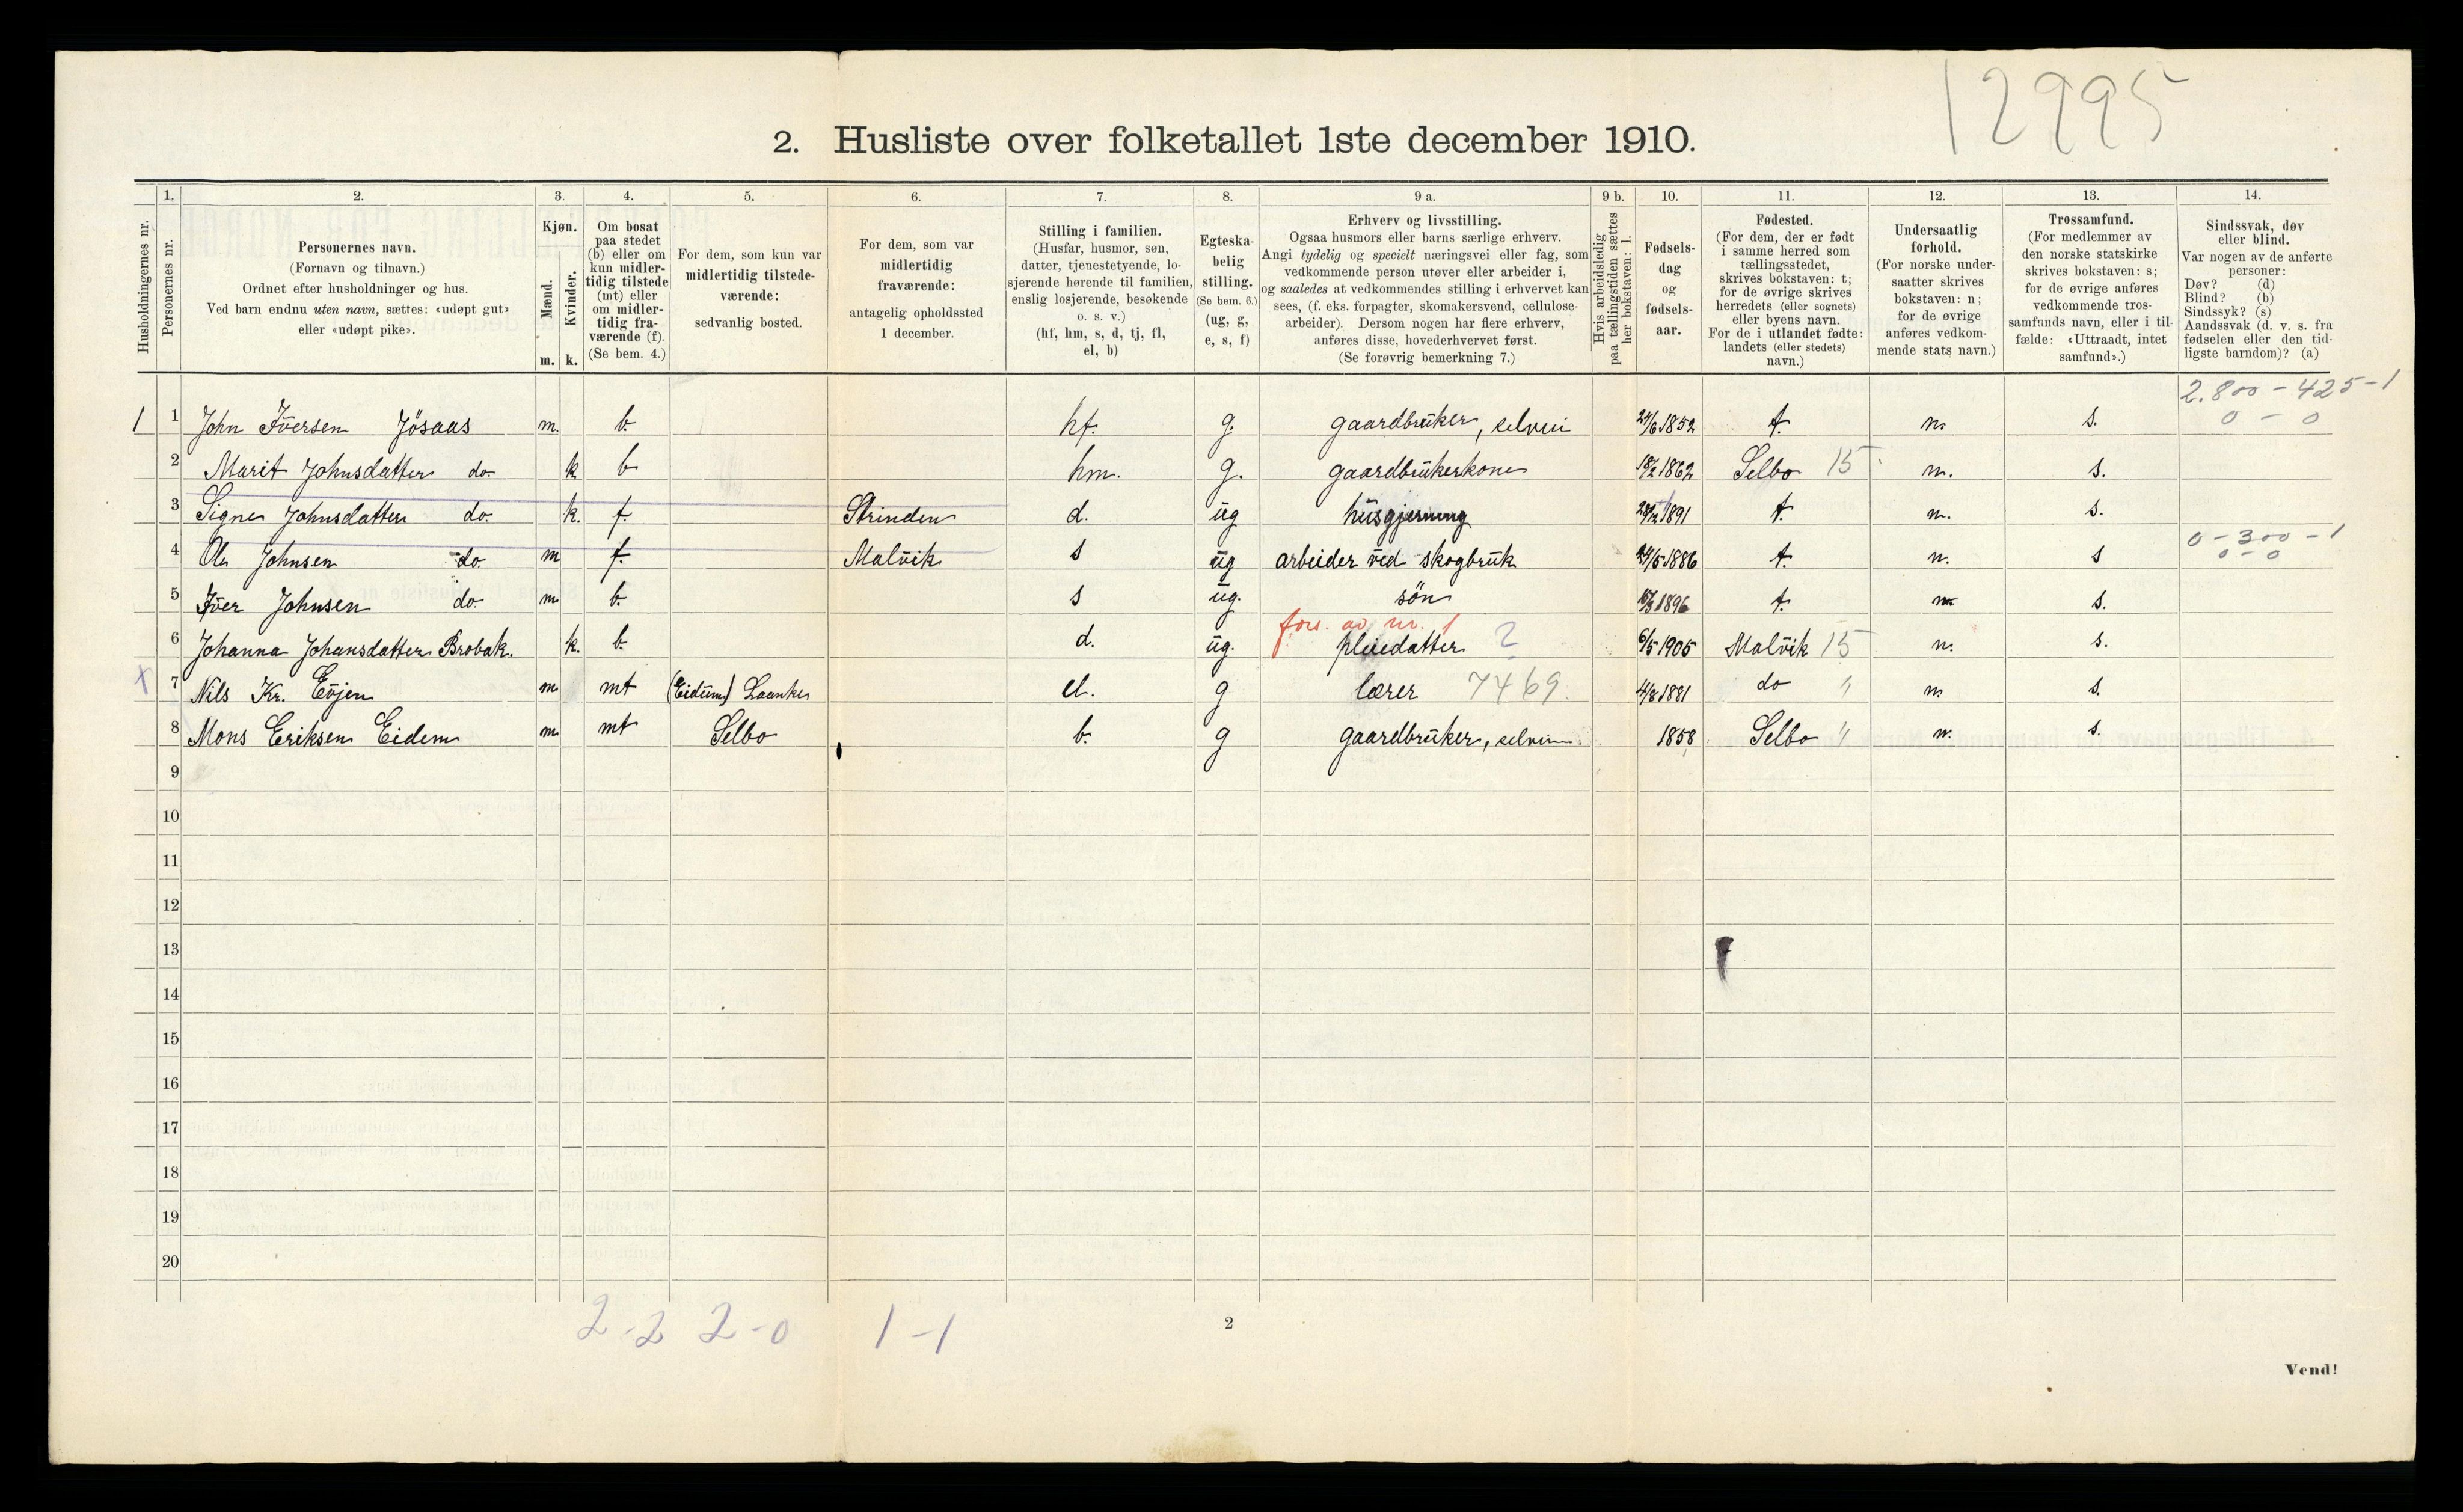 12995
2. Husliste over folketallet 1ste december 1910.
Husholdningernes nr.
1. Personernes nr.
2. Personernes navn. (Fornavn og tilnavn.) Ordnet efter husholdninger og hus. Ved barn endnu uten navn, sættes: «udøpt gut» eller «udøpt pike».
3. Kjøn. Mænd. m. Kvinder. k.
4. Om bosat paa stedet (b) eller om kun midlertidig tilstede (mt) eller om midlertidig fraværende (f). (Se bem. 4.)
5. For dem, som kun var midlertidig tilstedeværende: sedvanlig bosted.
6. For dem, som var midlertidig fraværende: antagelig opholdssted 1 december.
7. Stilling i familien. (Husfar, husmor, søn, datter, tjenestetyende, losjerende hørende til familien, enslig losjerende, besøkende o. s. v.) (hf, hm, s, d, tj, fl, el, b)
8. Egteskabelig stilling. (Se bem. 6.) (ug, g, e, s, f)
9 a. Erhverv og livsstilling. Ogsaa husmors eller barns særlige erhverv. Angi tydelig og specielt næringsvei eller fag, som vedkommende person utøver eller arbeider i, og saaledes at vedkommendes stilling i erhvervet kan sees, (f. eks. forpagter, skomakersvend, cellulosearbeider). Dersom nogen har flere erhverv, anføres disse, hovederhvervet først. (Se forøvrig bemerkning 7.)
9 b. Hvis arbeidsledig paa tællingstiden sættes her bokstaven: l.
10. Fødselsdag og fødselsaar.
11. Fødested. (For dem, der er født i samme herred som tællingsstedet, skrives bokstaven: t; for de øvrige skrives herredets (eller sognets) eller byens navn. For de i utlandet fødte: landets (eller stedets) navn.)
12. Undersaatlig forhold. (For norske undersaatter skrives bokstaven: n; for de øvrige anføres vedkommende stats navn.)
13. Trossamfund. (For medlemmer av den norske statskirke skrives bokstaven: s; for de øvrige anføres vedkommende trossamfunds navn, eller i tilfælde: «Uttraadt, intet samfund».)
14. Sindssvak, døv eller blind. Var nogen av de anførte personer: Døv? (d) Blind? (b) Sindssyk? (s) Aandssvak (d. v. s. fra fødselen eller den tidligste barndom)? (a)
2.800 - 425 - 1
1 1 John Iversen Jösaas m. b. hf. g. gaardbruker, selveie 24/6 1852 t. n. s. 0 - 0
2 Marit Johnsdatter do. k b hm. g. gaardbrukerkone 18/2 1862 Selbo 15 n. s.
3 Signe Johnsdatter do. k. f. Strinden d. ug husgjerning 1891 t. n. s.
0 - 300 - 1
4 Ole Johnsen do. m f. Malvik s ug arbeider ved skogbruk 24/5 1886 t. n. s 0 - 0
5 Iver Johnsen do. m. b. s ug. sön 1896 t. n. s.
fors. av nr. 1
6 Johanna Johansdatter Brobak. k. b. d. ug. pleiedatter ? 6/5 1905 Malvik 15 n. s.
X 7 Nils Kr. Evjen m. mt (Eidum) Laanke el. g lærer 7469. 4/8 1881 do " n. s.
8 Mons Eriksen Eidem m. mt Selbo b. g gaardbruker, selveie. 1858 Selbo " n. s.
9
10
11
12
13
14
15
16
17
18
19
20
2 - 2 2 - 0 1 - 1
2
Vend!